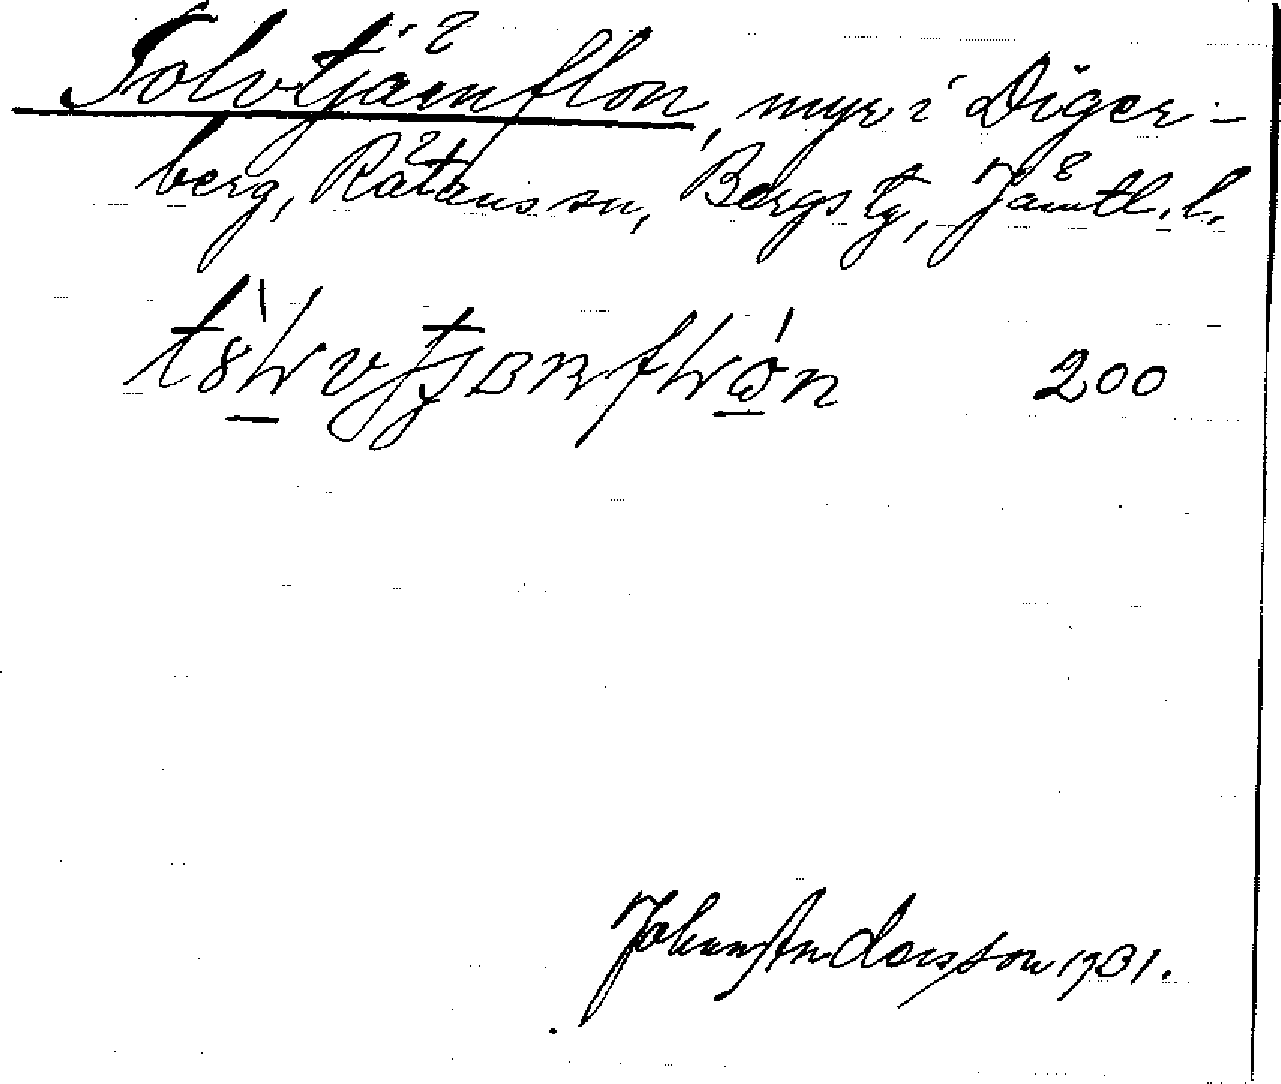 Tolvtjärnflon, myr i Diger-
berg, Rätans sn, Bergs tg, Jämtl. l.
200
Johan Andersson 1931.